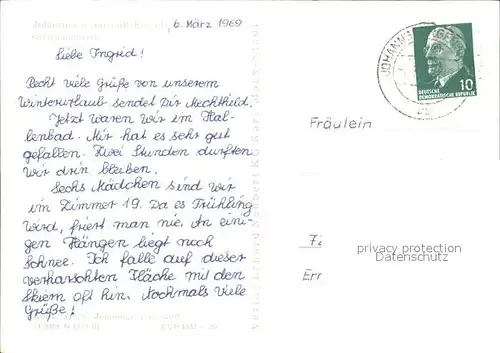 6. März 1969
Liebe Ingrid!
Recht viele Grüße von unserem
Winterurlaub sendet Dir Mechthild.
Jetzt waren wir im Hal-
lenbad. Mir hat es sehr gut
gefallen. Zwei Stunden durften
wir drin bleiben.
Sechs Mädchen sind wir
im Zimmer 19. Da es Frühling
wird, friert man nie. An eini-
gen Hängen liegt noch
Schnee. Ich falle auf dieser
verharschten Fläche mit den
Skiern oft hin. Nochmals viele
Grüße!
10
DEUTSCHE
DEMOKRATISCHE REPUBLIK
Fräulein
privacy protection
Datenschutz